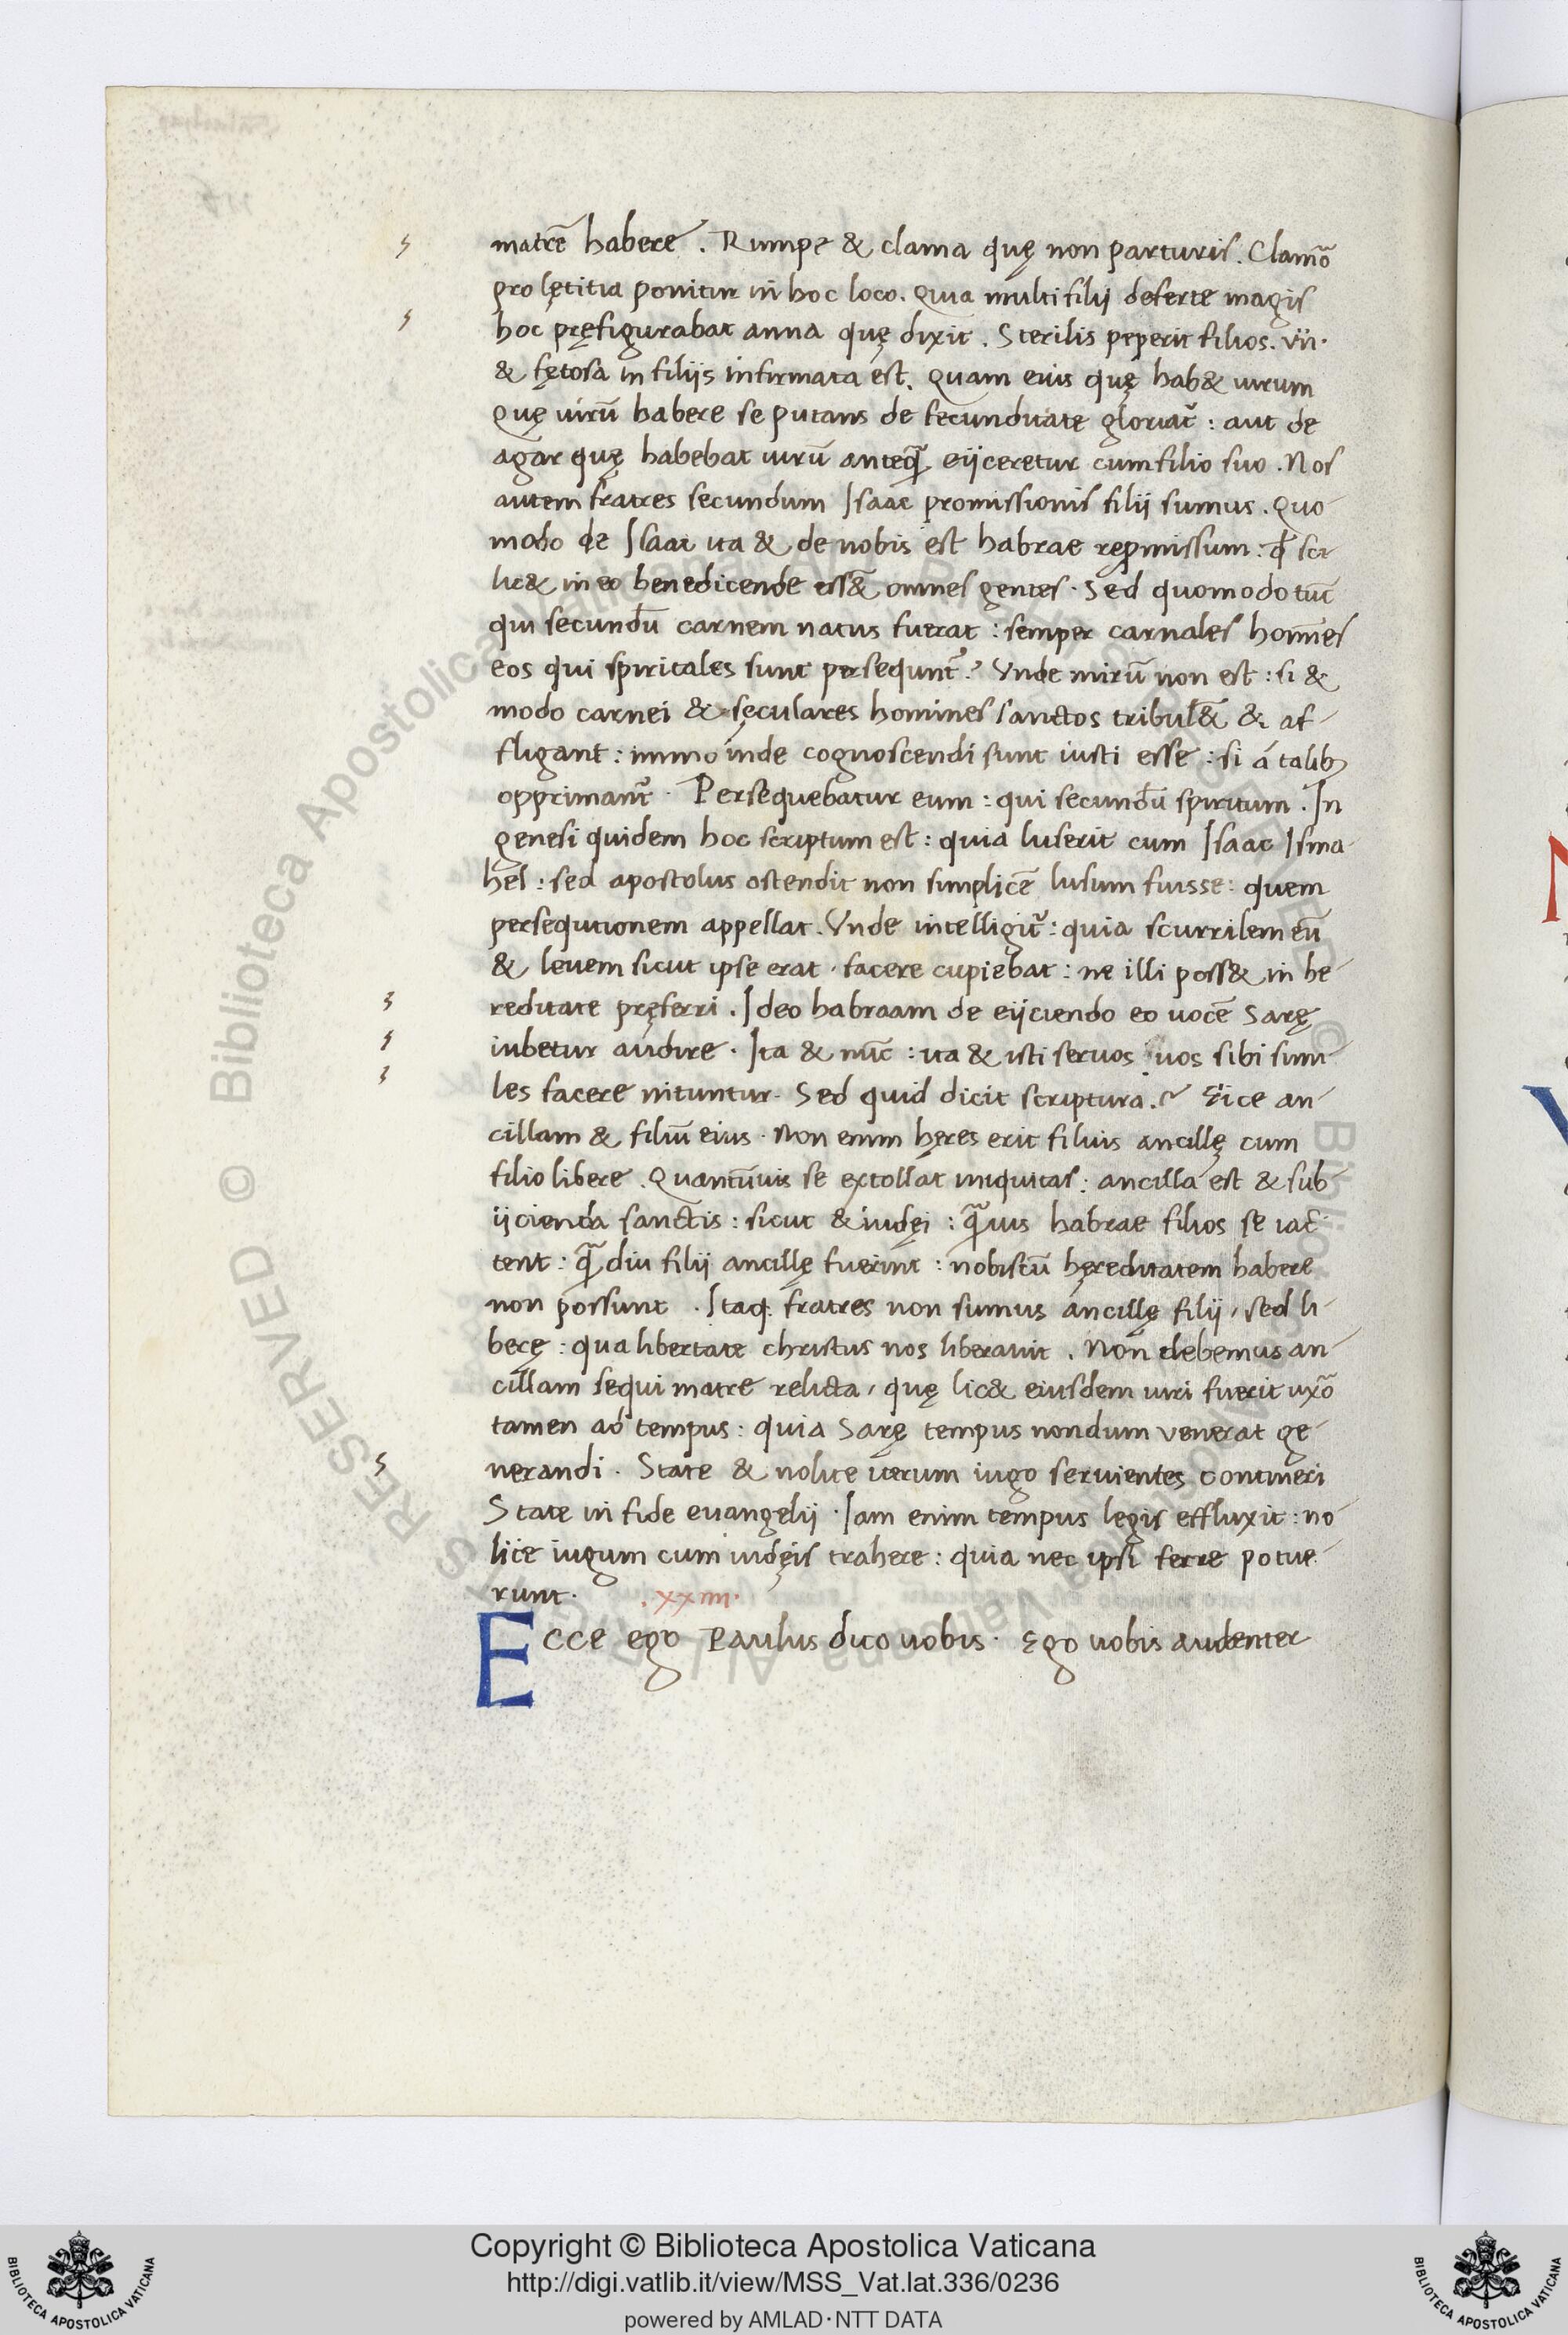 matrē habere. Rumpe & clama quę non parturis. Clamõ
pro lętitia ponitur in hoc loco. Quia multi filij deserte magis
hoc pręfigurabat anna quę dixit. Sterilis peperit filios. vii.
& fętosa in filijs infirmata est. Quam eius quę hab& uirum
Quę uirū habere se putans de fecunditate gloriat᷑: aut de
agar quę habebat uirū anteq̃ eijceretur cum filio suo. Nos
autem fratres secundum Isaac promissionis filij sumus. Quo-
modo de Isaac ita & de nobis est habrae repmissum: qđ sci-
lic& in eo benedicende ess& omnes gentes. Sed quomodo tūc
qui secundū carnem natus fuerat: semper carnales homēs
eos qui spiritales sunt persequnt᷑? Vnde mirū non est: si &
modo carnei & sęculares homines sanctos tribul& & af-
fligant: immo inde cognoscendi sunt iusti esse: si á talib;
opprimant᷑. Persequebatur eum: qui secundū spiritum. In
genesi quidem hoc scriptum est: quia luserit cum Isaac Isma-
hel: sed apostolus ostendit non simplicē lusum fuisse: quem
persequtionem appellat. Vnde intelligit᷑: quia scurrilem eū
& leuem sicut ipse erat. facere cupiebat: ne illi poss& in he-
reditate pręferri. Ideo habraam de eijciendo eo uocē Sarę
iubetur audire. Ita & nūc: ita & isti seruos uos sibi simi-
les facere nituntur. Sed quid dicit scriptura? Eiice an-
cillam & filiū eius. Non enim hęres erit filius ancillę cum
filio libere. Quantūuis se extollat iniquitas: ancilla est & sub-
ijcienda sanctis: sicut & iudęi: q̃uis habrae filios se iac-
tent: q̃ diu filij ancillę fuerint: nobiscū hęreditatem habere
non possunt. Itaq. fratres non sumus ancillę filij, sed li-
berę: qua libertate christus nos liberauit. Non debemus an-
cillam sequi matre relicta, quę lic& eiusdem uiri fuerit uxõ
tamen ad tempus: quia Sarę tempus nondum venerat ge-
nerandi. State & nolite iterum iugo seruientes contineri
State in fide euangelij. Iam enim tempus legis effluxit: no-
lite iugum cum iudęis trahere: quia nec ipsi ferre potue-
runt. .xxiiii.
Ecce ego Paulus dico uobis. Ego uobis audenter
© Biblioteca Apostolica Vaticana
RESERVED
Copyright © Biblioteca Apostolica Vaticana
http://digi.vatlib.it/view/MSS_Vat.lat.336/0236
powered by AMLAD·NTT DATA
BIBLIOTECA APOSTOLICA VATICANA
BIBLIOTECA APOSTOLICA VATICANA